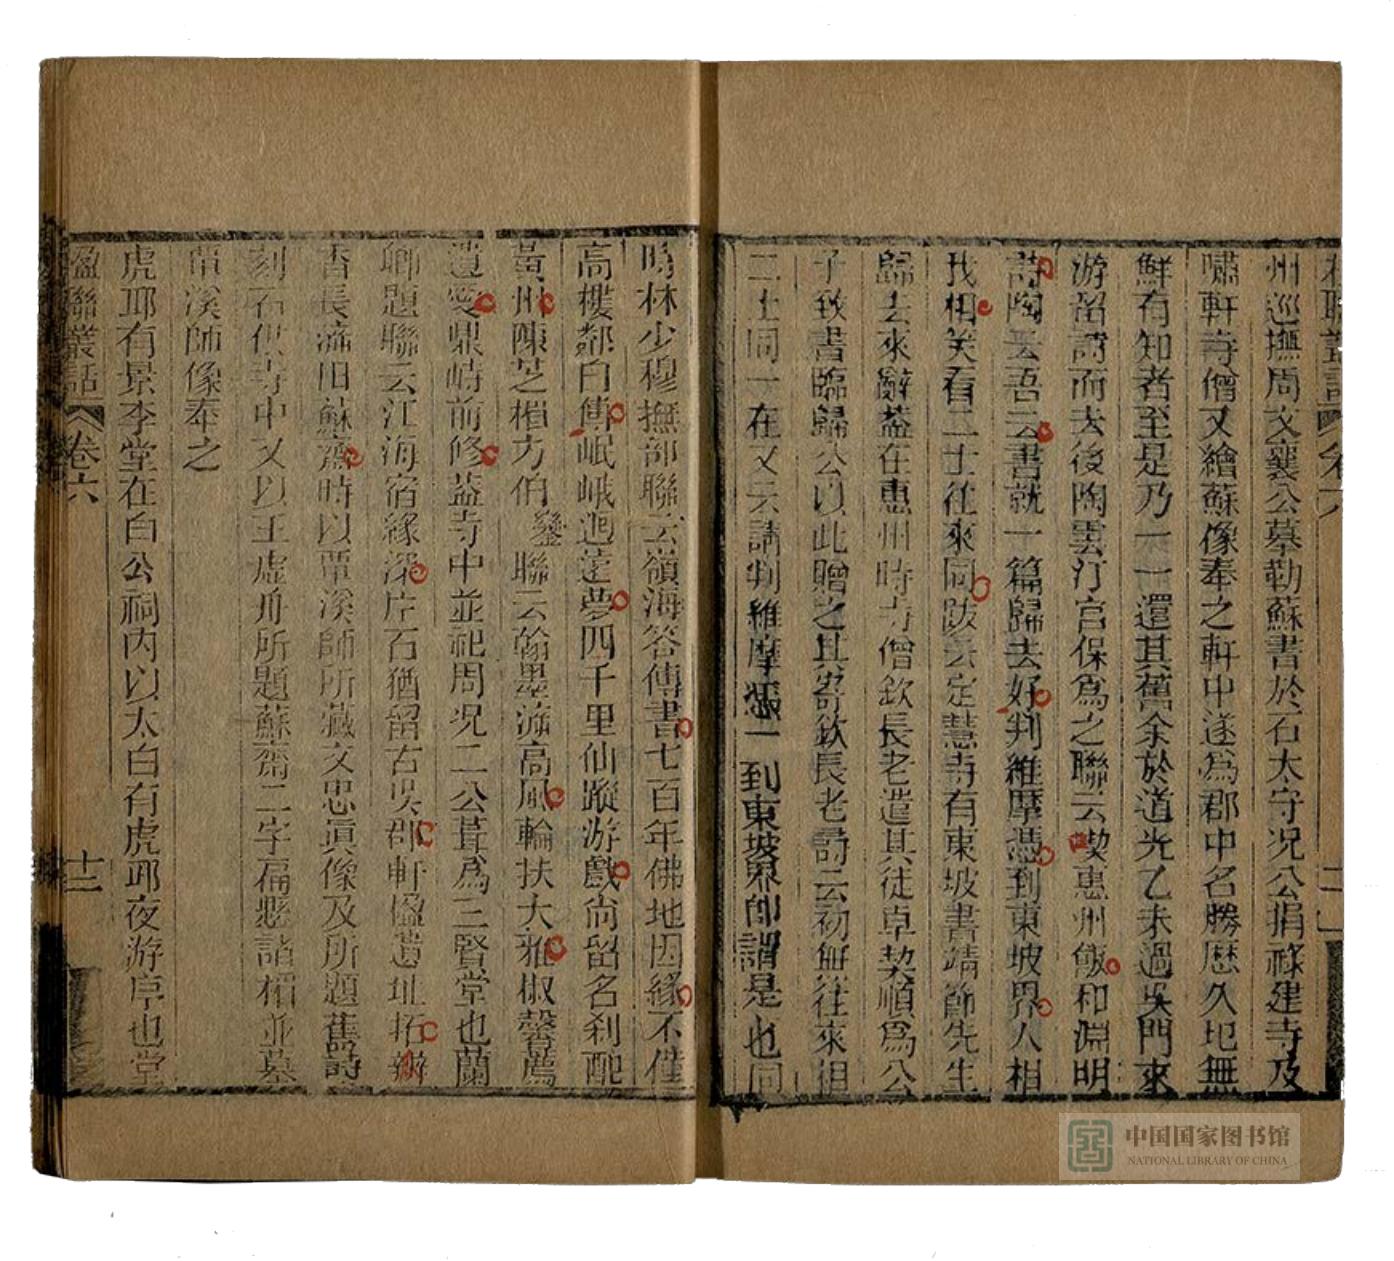 州巡撫周文襄公摹勒蘇書於石太守况公捐祿建寺及
嘯軒寺僧又繪蘇像奉之軒中遂為郡中名勝歷久圯無
鮮有知者至是乃一一還其舊余於道光乙未過吳門來
游留詩而去後陶雲汀官保為之聯云喫惠州飯和淵明
詩陶云吾云書就一篇歸去好判維摩憑到東坡界人相
我相笑看二士往來同跋云定慧寺有東坡書靖節先生
歸去來辭蓋在惠州時寺僧欽長老遣其徒卓契順為公
子致書臨歸公以此贈之其寄欽長老詩云初無往來相
二士同一在又云請判維摩憑一到東坡界卽謂是也同
時林少穆撫部聯云嶺海答傳書七百年佛地因緣不僅
高樓鄰白傅岷峨迴遠夢四千里仙蹤游戲尚留名刹配
黃州陳芝楣方伯鑾聯云翰墨流高風輪扶大雅椒馨薦
遺愛鼎峙前修蓋寺中並祀周况二公葺為三賢堂也蘭
卿題聯云江海宿緣深片石猶留古吳郡軒楹遺址拓瓣
香長流旧蘇齋時以覃溪師所藏文忠眞像及所題舊詩
刻石供寺中又以王虛舟所題蘇齋二字扁懸諸楣並摹
覃溪師像奉之
虎邱有景李堂在白公祠內以太白有虎邱夜游序也堂
楹聯叢話 卷六 十二
中国国家图书馆
NATIONAL LIBRARY OF CHINA